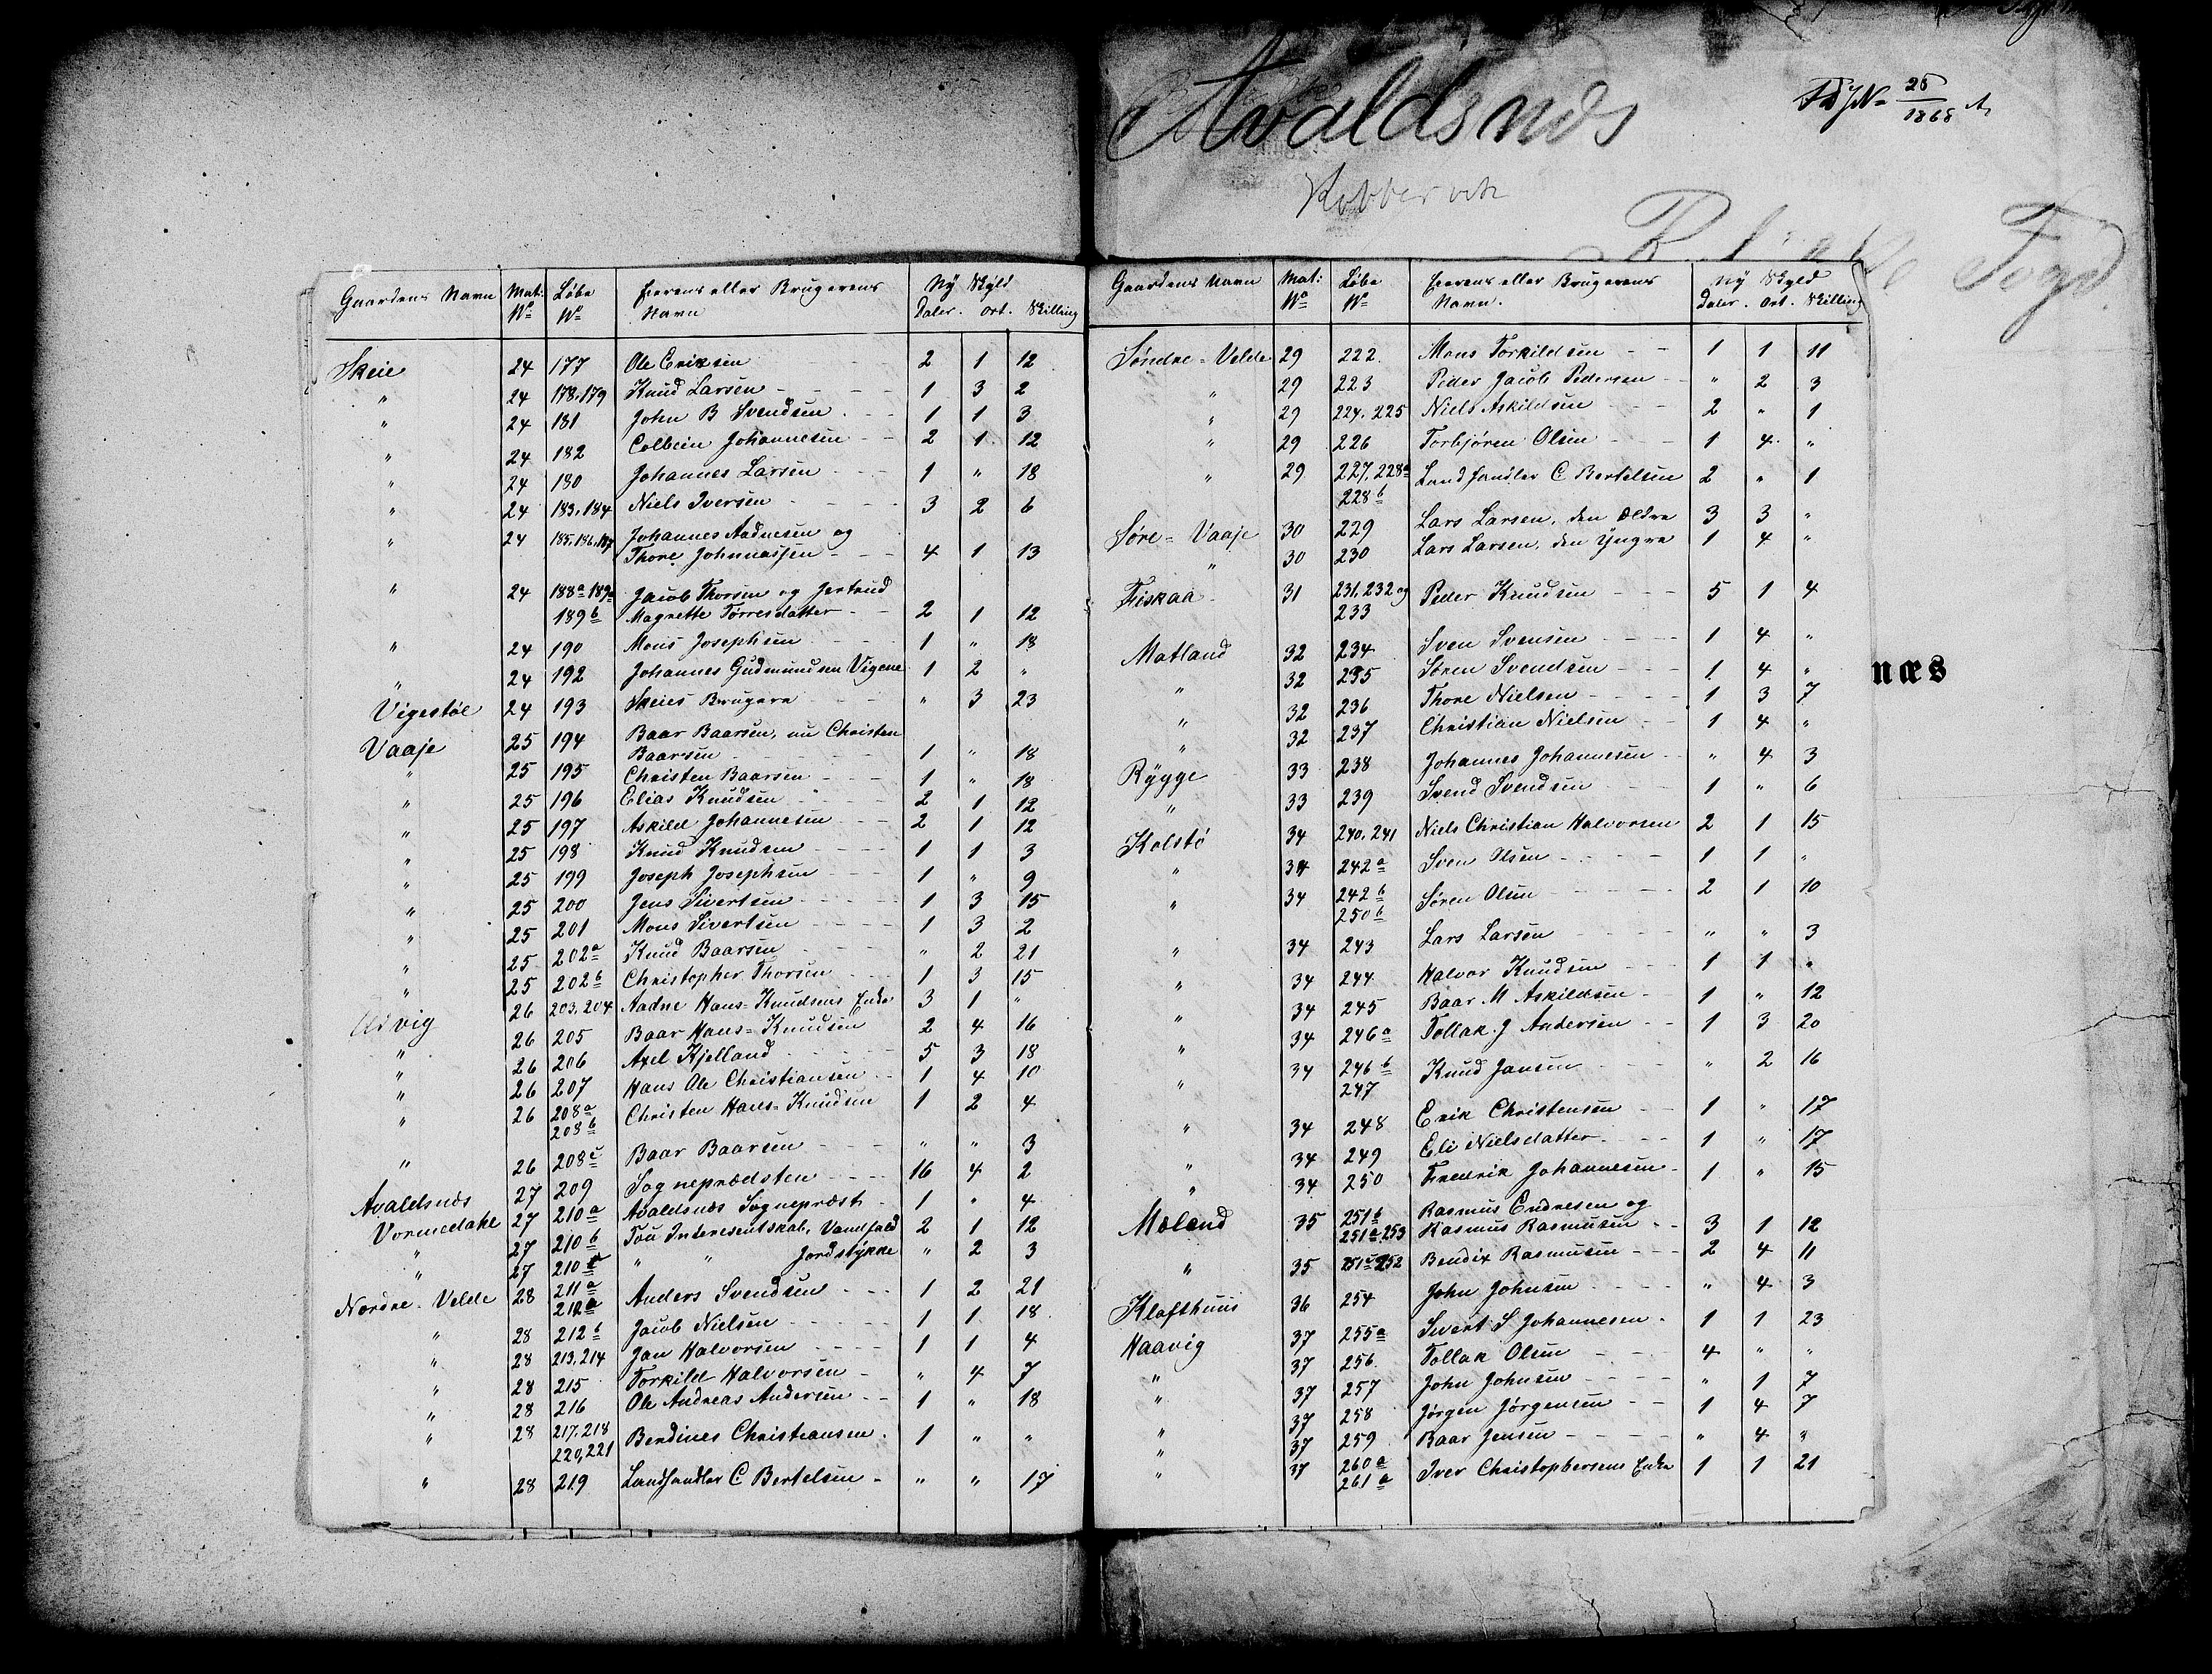 Avaldsnæs
Kobbervik
28
1868
Fogd
næs
Gaardens Navn Mat: No Løbe No Eierens eller Brugerens Navn Ny Skyld Daler. Ort. Skilling
Skeie 24 177 Ole Eriksen 2 1 12
" 24 178,179 Knud Larsen 1 3 2
" 24 181 John B Svendsen 1 1 3
" 24 182 Colbein Johannesen 2 1 12
" 24 180 Johannes Larsen 1 " 18
" 24 183,184 Niels Iversen 3 2 6
" 24 185,186,187 Johannes Aadnesen og
Thore Johnnassen 4 1 13
" 24 188a 189a Jacob Thorsen og Gertrud
189b Magnette Torresdatter 2 1 12
" 24 190 Mons Josephsen 1 " 18
" 24 192 Johannes Gudmundsen Vigene 1 2 "
Vigestøl 24 193 Skeies Brugere " 3 23
Vaaje 25 194 Baar Baarsen, nu Christen
Baarsen 1 " 18
" 25 195 Christen Baarsen 1 " 18
" 25 196 Elias Knudsen 2 1 12
" 25 197 Askild Johannesen 2 1 12
" 25 198 Knud Knudsen 1 1 3
" 25 199 Joseph Josephsen 1 " 9
" 25 200 Jens Sivertsen 1 3 15
" 25 201 Mons Sivertsen 1 3 2
" 25 202a Knud Baarsen " 2 21
" 25 202b Christopher Thorsen 1 3 15
Udvig 26 203,204 Aadne Hans-Knudsens Enke 3 1 "
" 26 205 Baar Hans-Knudsen 2 4 16
" 26 206 Axel Kjelland 5 3 18
" 26 207 Hans Ole Christiansen 1 4 10
" 26 208a Christen Hans-Knudsen 1 2 4
208b
" 26 208c Baar Baarsen " " 3
Avaldsnæs 27 209 Sognepræsten 16 4 2
Vormedahl 27 210a Avaldsnæs Sognepræst 1 " 4
" 27 210b Tou Interesentskab, Vandfald 2 1 12
" 27 210c " " Jordstykke " 2 3
Nordre-Velde 28 211a Anders Svendsen 1 2 21
212a
" 28 212b Jacob Nielsen 1 1 18
" 28 213,214 Jan Halvorsen 1 1 4
" 28 215 Torkild Halvorsen " 4 7
" 28 216 Ole Andreas Andersen 1 " 18
" 28 217,218 Berdines Christiansen 1 " "
220,221
" 28 219 Landhandler C Bertelsen " " 17
Gaardens Navn Mat: No Løbe No Eierens eller Brugerens Navn. Ny Skyld Daler. Ort. Skilling
Søndre-Velde 29 222 Mons Torkildsen 1 1 11
" 29 223 Peder Jacob Pedersen " 2 3
" 29 224,225 Niels Askildsen 2 " 1
" 29 226 Torbjøren Olsen 1 4 "
" 29 227,228a Landhandler C Bertelsen 2 " 1
228b
Søre-Vaaje 30 229 Lars Larsen, den Ældre 3 3 "
" 30 230 Lars Larsen, den Yngre 1 4 "
Fiskaa 31 231,232 og Peder Knudsen 5 1 4
233
Matland 32 234 Sven Svensen 1 4 "
" 32 235 Søren Svendsen 1 4 "
" 32 236 Thore Nielsen 1 3 7
" 32 237 Christian Nielsen 1 4 "
Rygge 33 238 Johannes Johannesen " 4 3
" 33 239 Svend Svendsen 1 " 6
Kolstø 34 240,241 Niels Christian Halvorsen 2 1 15
" 34 242a Sven Olsen 1 1 "
" 34 242b Søren Olsen 2 1 10
250b
" 34 243 Lars Larsen " " 3
" 34 244 Halvor Knudsen 1 1 "
" 34 245 Baar M Askildsen 1 " 12
" 34 246a Tollak J Andersen 1 3 20
" 34 246b Knud Jansen " 2 16
247
" 34 248 Erik Christensen 1 " 17
" 34 249 Eli Nielsdatter 1 " 17
" 34 250 Fredrik Johannesen 1 " 15
Moland 35 251b Rasmus Endresen og
251a 253 Rasmus Rasmusen 3 1 12
" 35 251c 252 Bendix Rasmusen 2 4 11
Klofthuus 36 254 John Johnsen " 4 3
Haavig 37 255a Sivert S Johannesen 1 1 23
" 37 256 Tollak Olsen 4 " "
" 37 257 John Johnsen " 1 7
37 258 Jørgen Jørgensen 1 4 7
" 37 259 Baar Jensen " 4 "
" 37 260a Iver Christophersens Enke 1 1 21
261a